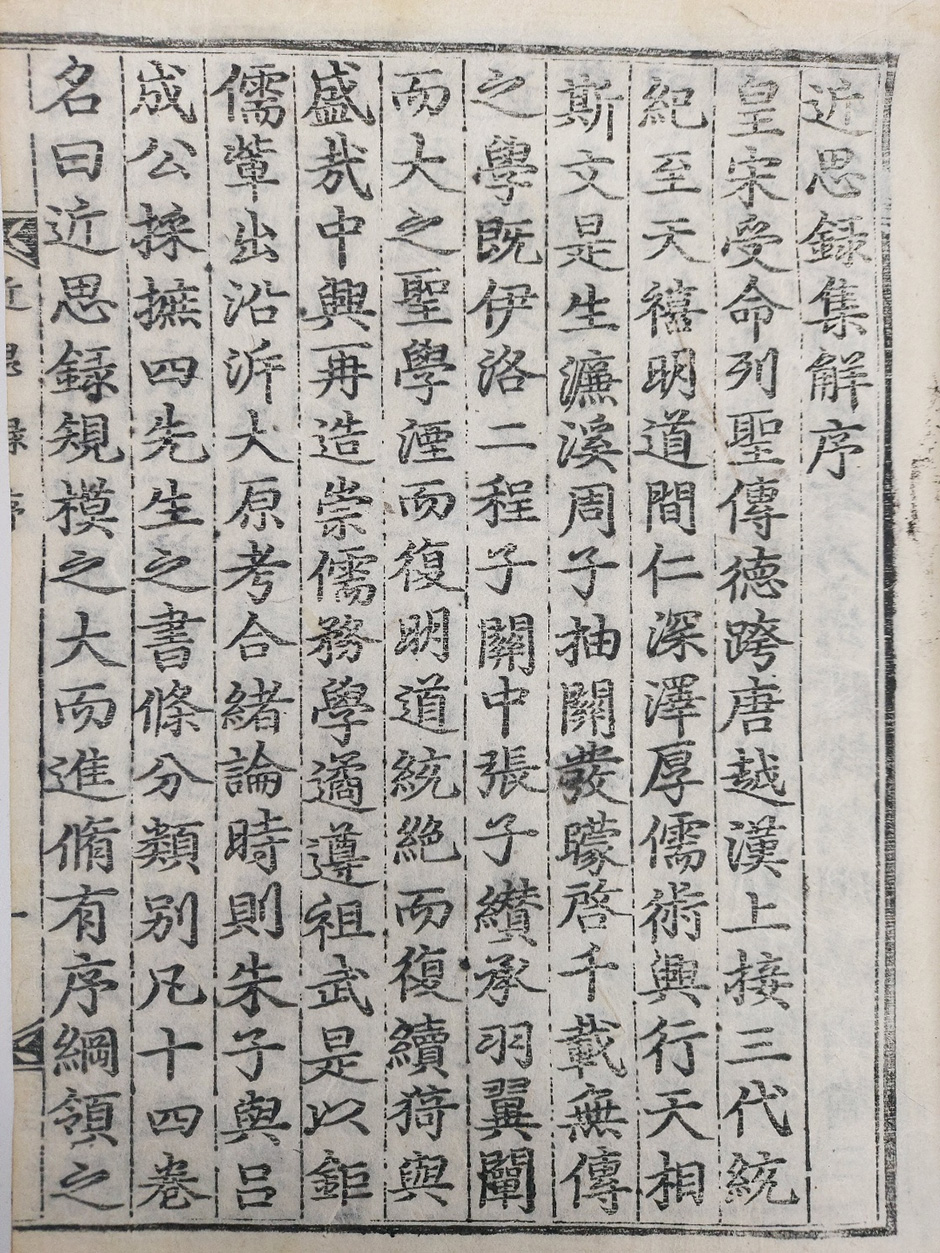 近思録集解序
皇宋受命列聖傳德跨唐越漢上接三代統
紀至天禧明道間仁深澤厚儒術興行天相
斯文是生濂溪周子抽關發矇啓千載無傳
之學既伊洛二程子關中張子纘承羽翼闡
而大之聖學湮而復明道統絶而復續猗與
盛哉中興再造崇儒務學遹遵祖武是以鉅
儒軰出沿泝大原考合緒論時則朱子與呂
成公採摭四先生之書條分類别凡十四卷
名曰近思録規模之大而進脩有序綱領之
近思録序
一